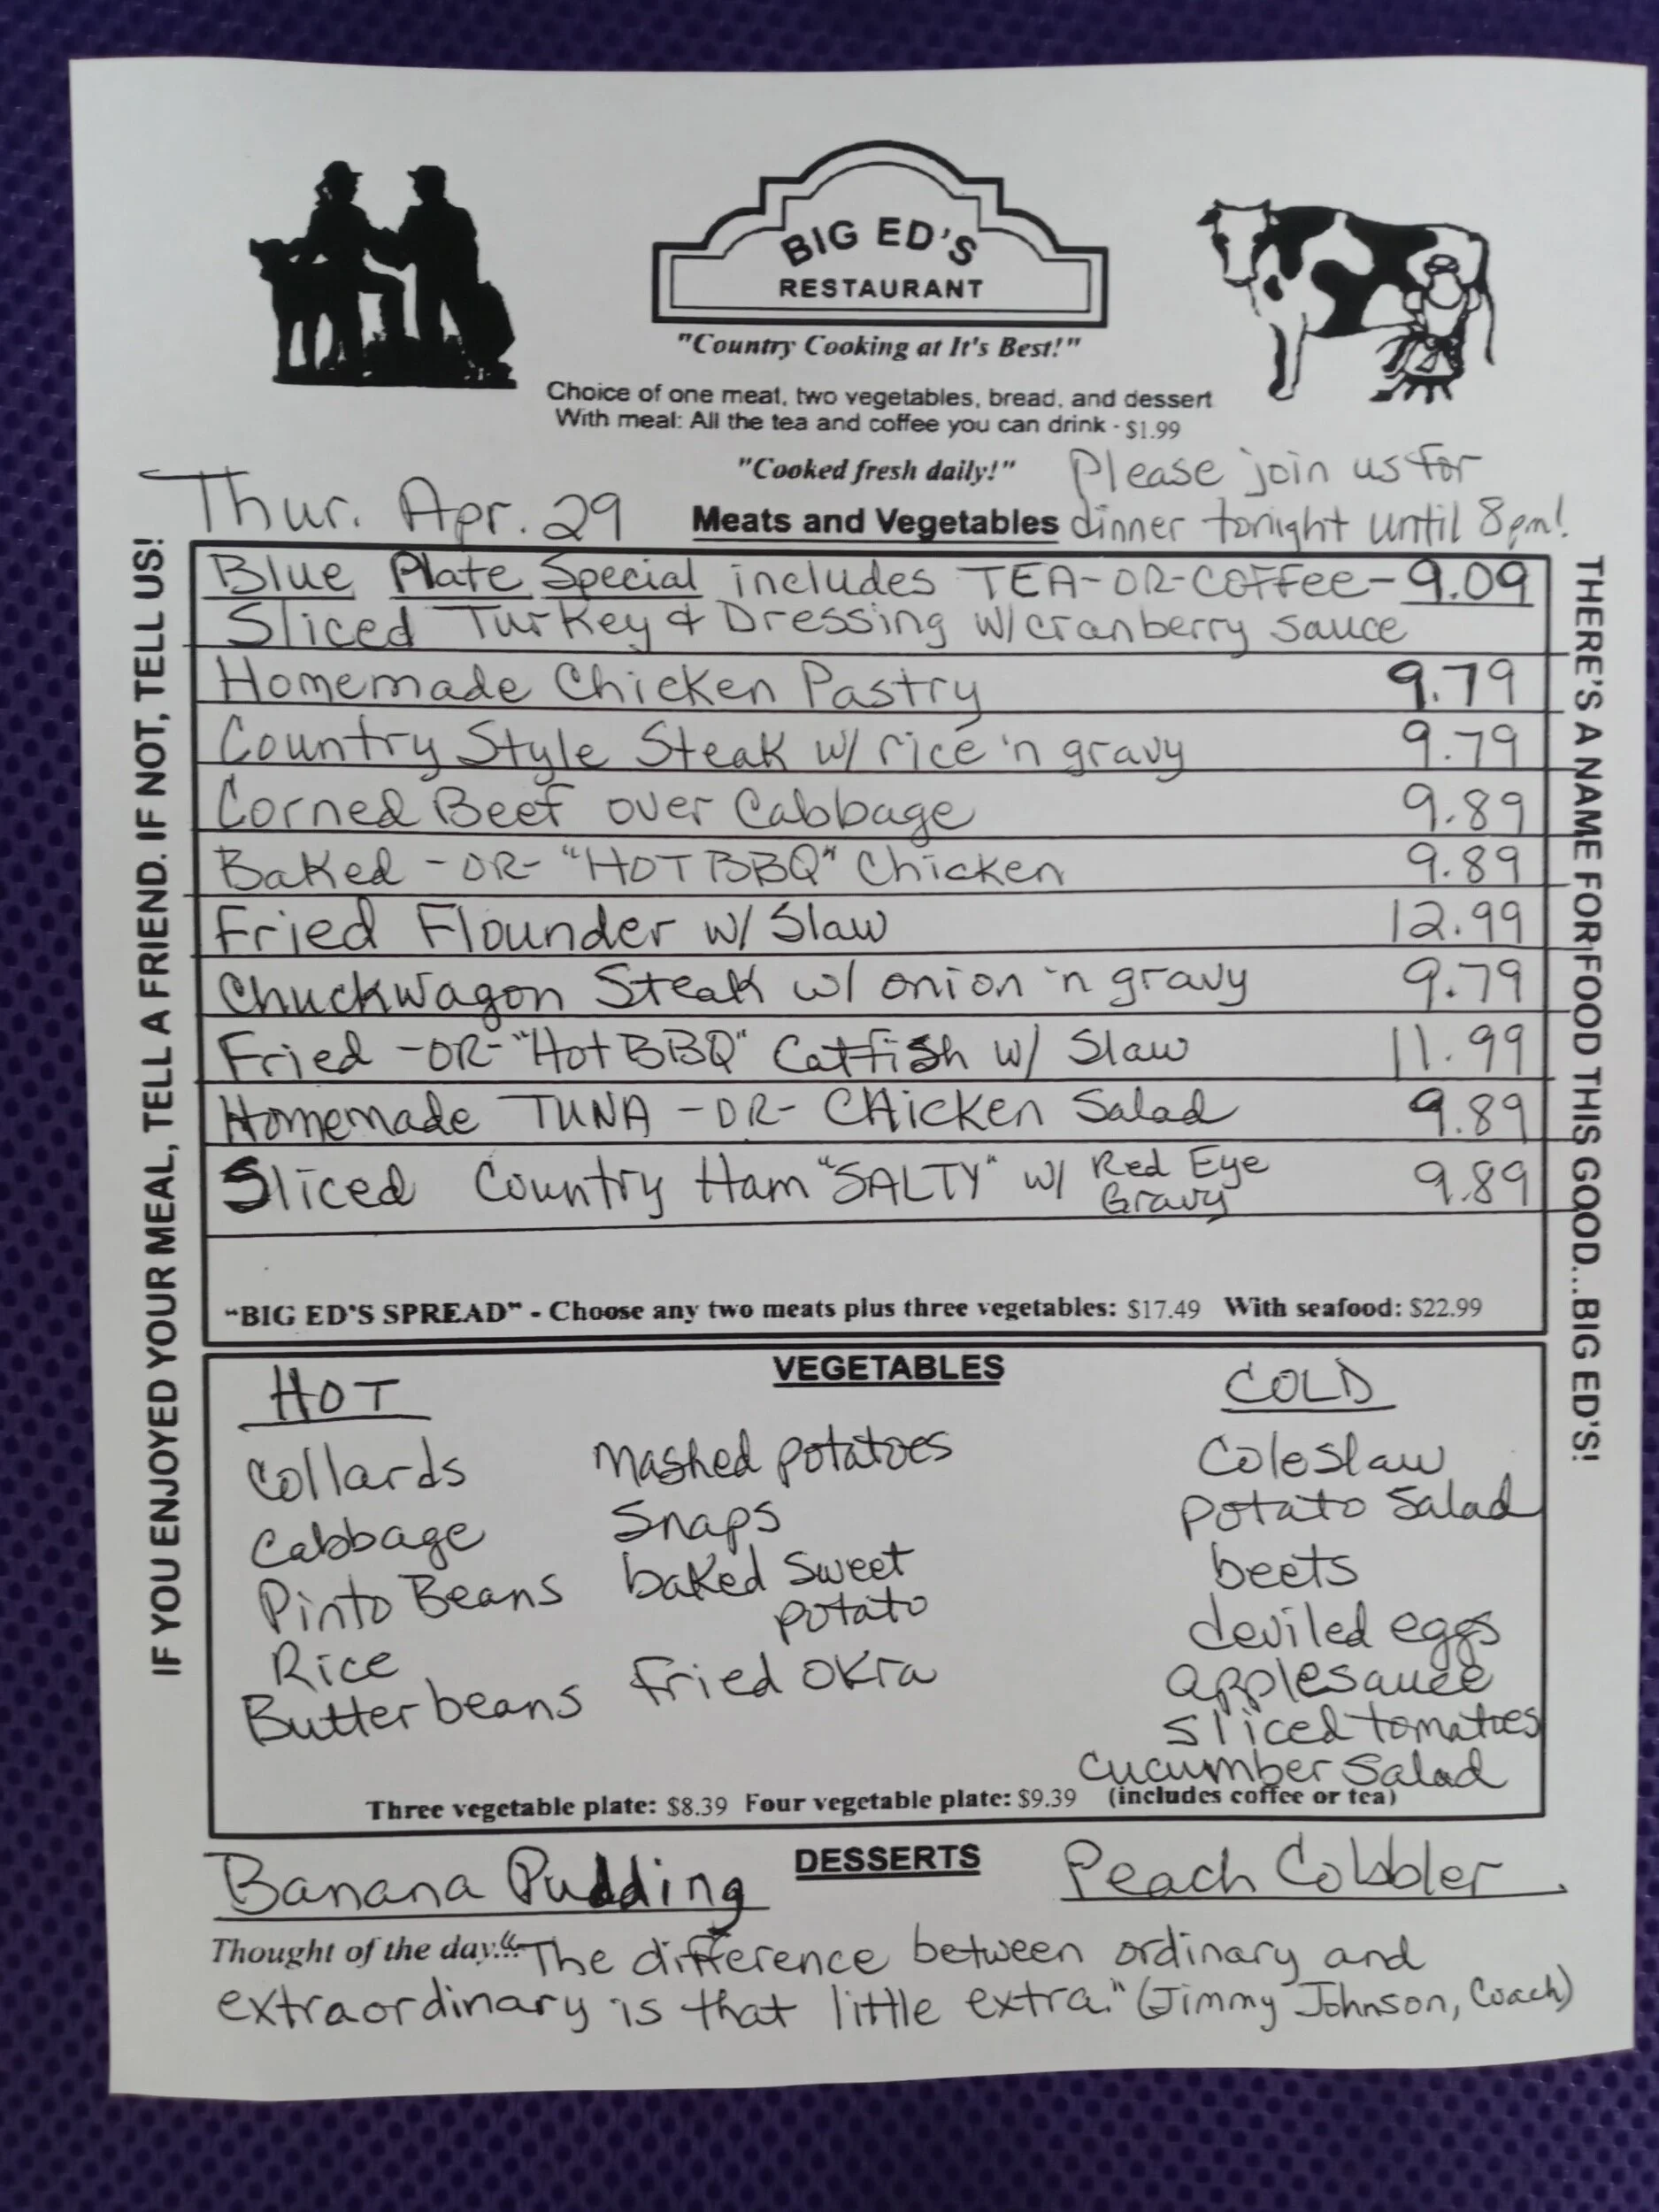 BIG ED'S
RESTAURANT
"Country Cooking at It's Best!"
Choice of one meat, two vegetables, bread, and dessert
With meal: All the tea and coffee you can drink - $1.99
"Cooked fresh daily!"
Please join us for
dinner tonight until 8pm!
Thur. Apr. 29
Meats and Vegetables
IF YOU ENJOYED YOUR MEAL, TELL A FRIEND. IF NOT, TELL US!
THERE'S A NAME FOR FOOD THIS GOOD...BIG ED'S!
Blue Plate Special includes TEA-OR-COFFee- 9.09
Sliced Turkey & Dressing w/cranberry sauce
Homemade Chicken Pastry 9.79
Country Style Steak w/ rice 'n gravy 9.79
Corned Beef over Cabbage 9.89
Baked -OR- "HOT BBQ" Chicken 9.89
Fried Flounder w/ Slaw 12.99
Chuckwagon Steak w/ onion 'n gravy 9.79
Fried -OR- "Hot BBQ" Catfish w/ Slaw 11.99
Homemade TUNA -OR- CHicken Salad 9.89
Sliced Country Ham "SALTY" w/ Red Eye 9.89
Gravy
"BIG ED'S SPREAD" - Choose any two meats plus three vegetables: $17.49 With seafood: $22.99
VEGETABLES
HOT
Collards
Cabbage
Pinto Beans
Rice
Butter beans
Mashed potatoes
Snaps
baked sweet
potato
Fried okra
COLD
Coleslaw
potato salad
beets
deviled eggs
applesauce
sliced tomatoes
cucumber salad
Three vegetable plate: $8.39 Four vegetable plate: $9.39 (includes coffee or tea)
DESSERTS
Banana Pudding
Peach Cobbler
Thought of the day... "The difference between ordinary and
extraordinary is that little extra." (Jimmy Johnson, Coach)